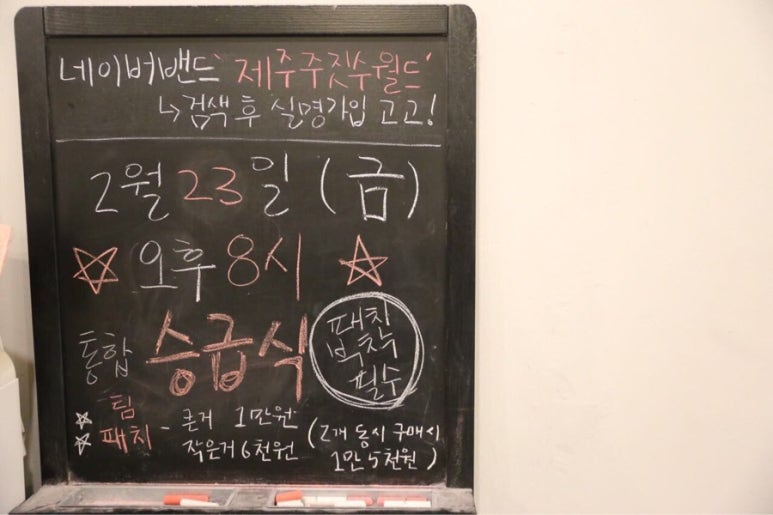 네이버밴드 '제주주짓수월드'
↳ 검색 후 실명가입 고고!
2월 23일 (금)
☆ 오후 8시 ☆
통합 승급식
패치
부착
필수
☆ 팀
☆ 패치 - 큰거 1만원
작은거 6천원
(2개 동시 구매시
1만 5천원)